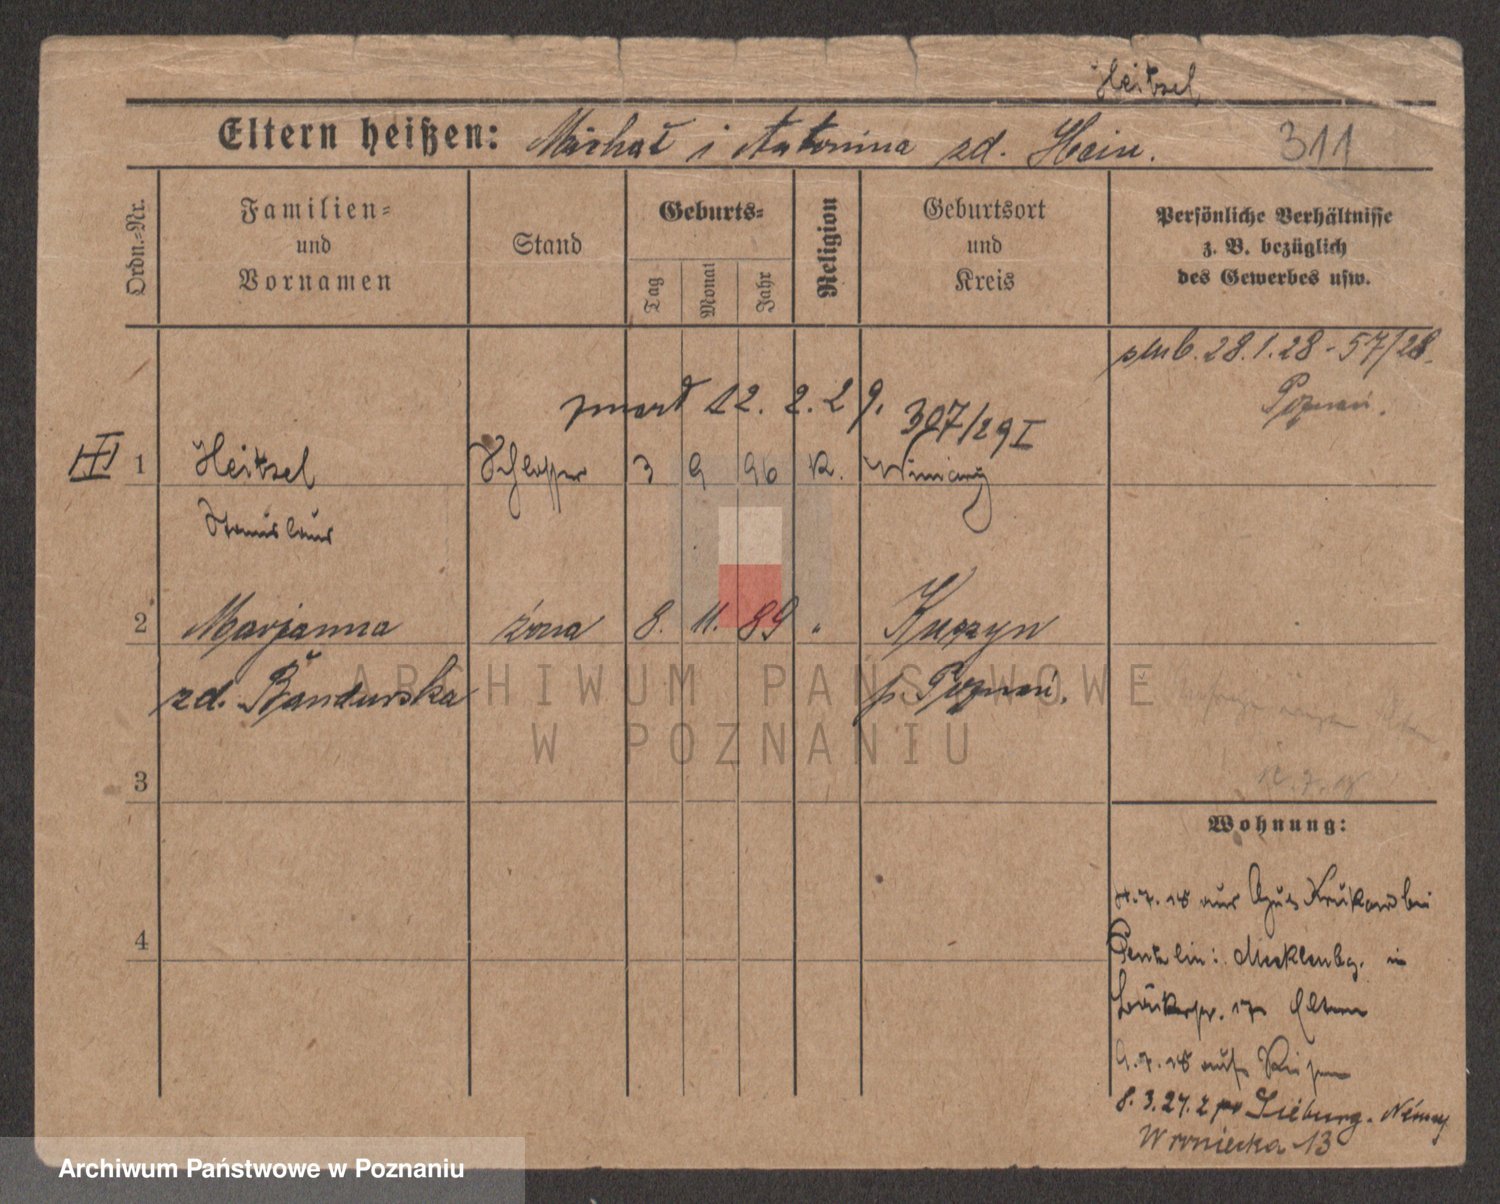 Heitzel
Eltern heißen: Michał i Antonina zd. Hein. 311
Ordn.-Nr.
Familien- und Vornamen
Stand
Geburts-
Tag Monat Jahr
Religion
Geburtsort und Kreis
Persönliche Verhältnisse
z. B. bezüglich
des Gewerbes usw.
ślub. 28.1.28 - 57/28.
Poznań.
zmarł 12. 2. 29. 307/29 I
III 1 Heitzel Schlosser 3 9 96 K. Winiary
Stanislaus
2 Marjanna żona 8. 11. 89 " Kuszyn
zd. Bandurska p. Poznań.
3
Wohnung:
4
aus
Mecklenbg. in
17 Eltern
auf Reisen
8.3.27. z Niemcy
Wroniecka 13
ARCHIWUM PAŃSTWOWE
W POZNANIU
Archiwum Państwowe w Poznaniu